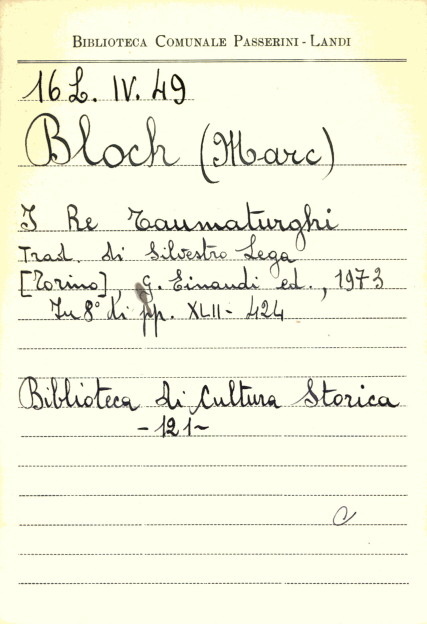 BIBLIOTECA COMUNALE PASSERINI - LANDI
16 L. IV. 49
Bloch (Marc)
I Re Taumaturghi
Trad. di Silvestro Lega
[Torino], G. Einaudi ed., 1973
In 8° di pp. XLII - 424
Biblioteca di Cultura Storica
- 121 -
C